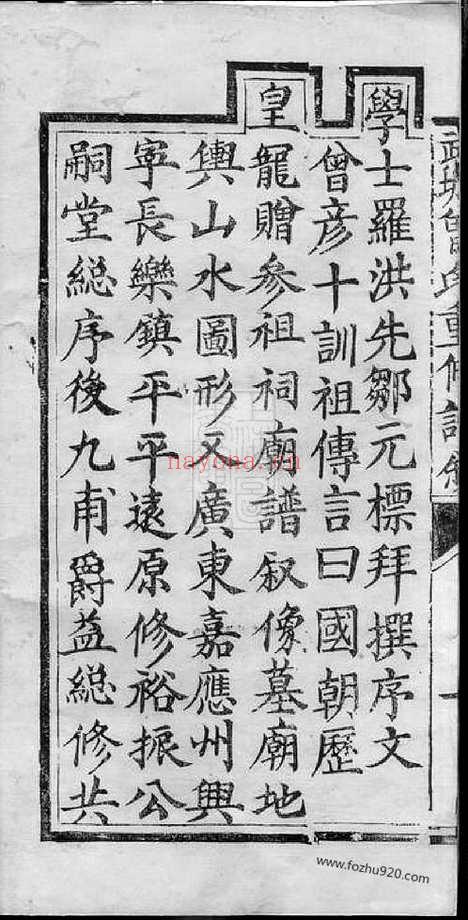 武城曾氏重修
學士羅洪先鄒元標拜撰序文
曾彥十訓祖傳言曰國朝歷
皇寵贈參祖祠廟譜叙像墓廟地
輿山水圖形又廣東嘉應州興
寧長樂鎮平平遠原修裕振公
嗣堂総序後九甫爵益総修共
nayona.cn
www.fozhu920.com